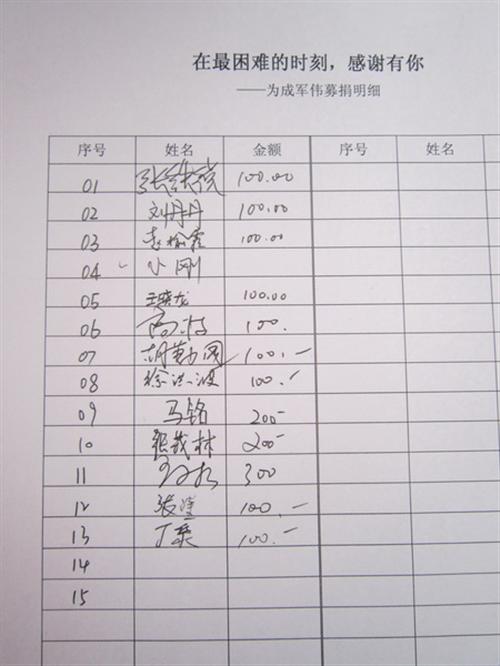 在最困难的时刻，感谢有你
——为成军伟募捐明细
序号 姓名 金额 序号 姓名
01 100.00
02 刘丹丹 100.00
03 100.00
04 小刚
05 王晓龙 100.00
06 100.
07 100.-
08 徐洪波 100.-
09 马铭 200-
10 张茂林 200-
11 300
12 张 100.-
13 丁 100.-
14
15